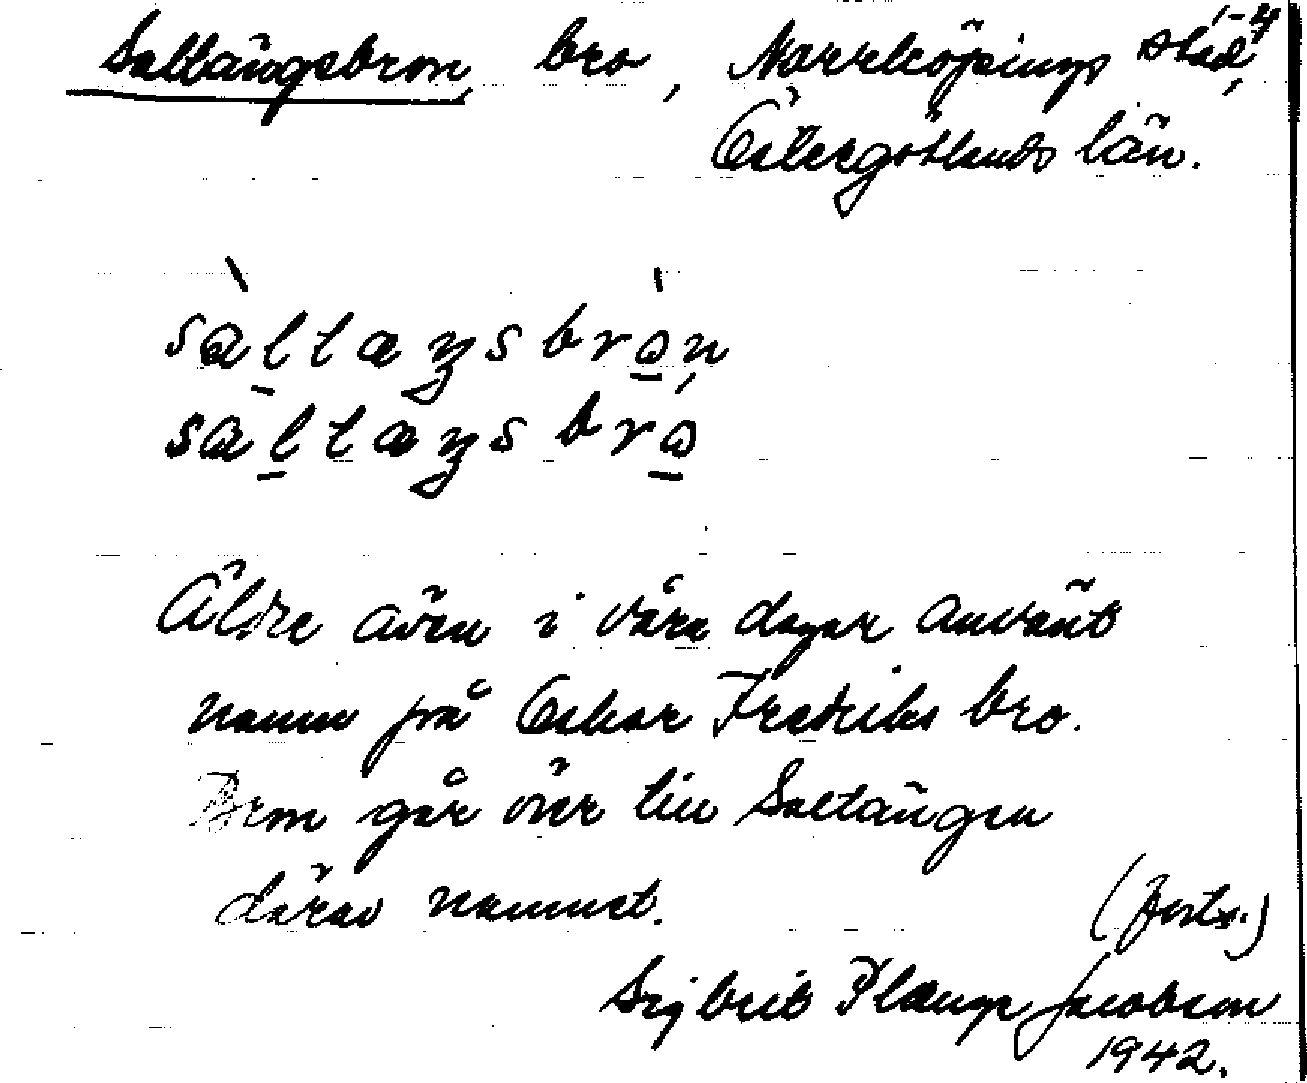 Saltängsbron, bro, Norrköpings stad, 1-4
Östergötlands län.
sàltæŋsbròn
sàltæŋsbró
Äldre även i våra dagar använt
namn på Oskar Fredriks bro.
Bron går över till Saltängen
därav namnet. (forts.)
Sigbrit Plænge Jacobson
1942.